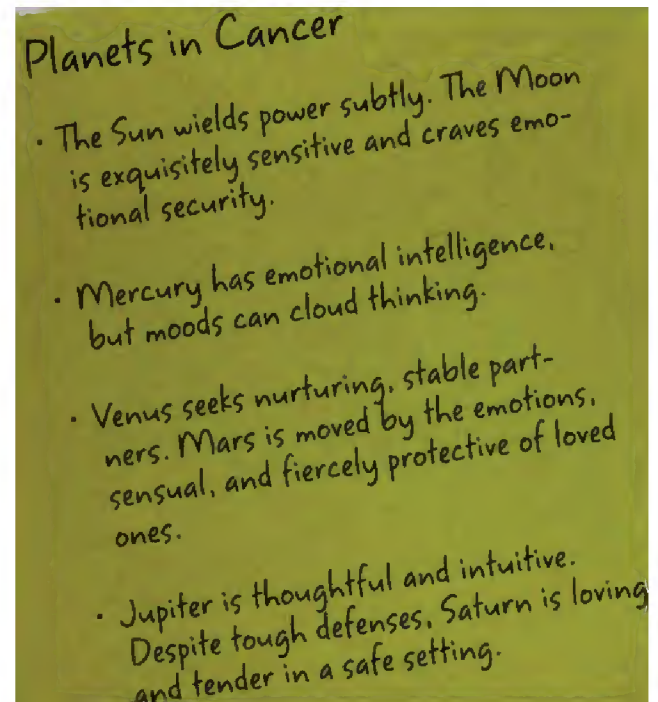 Planets in Cancer
· The Sun wields power subtly. The Moon
is exquisitely sensitive and craves emo-
tional security.
· Mercury has emotional intelligence,
but moods can cloud thinking.
· Venus seeks nurturing, stable part-
ners. Mars is moved by the emotions,
sensual, and fiercely protective of loved
ones.
· Jupiter is thoughtful and intuitive.
Despite tough defenses, Saturn is loving
and tender in a safe setting.